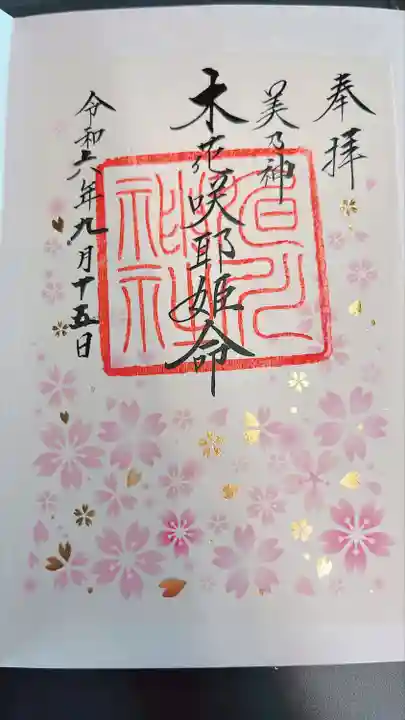 奉拝
美乃神
木花咲耶姫命
令和六年九月十五日